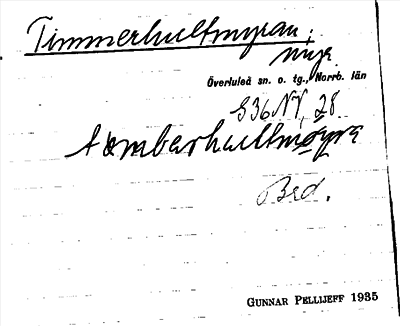 Timmerhultmyran,
myr
Överluleå sn. o. tg., Norrb. län
S36NV, 28
Brd.
GUNNAR PELLIJEFF 1935